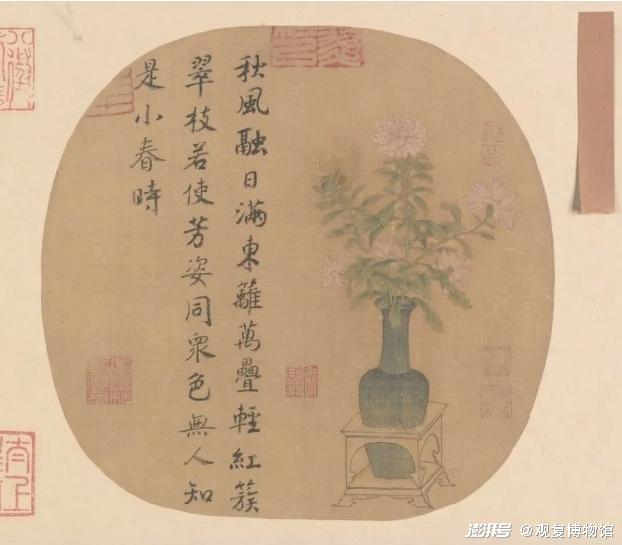 秋風融日滿東籬萬疊輕紅簇
翠枝若使芳姿同衆色無人知
是小春時
澎湃号 @观复博物馆